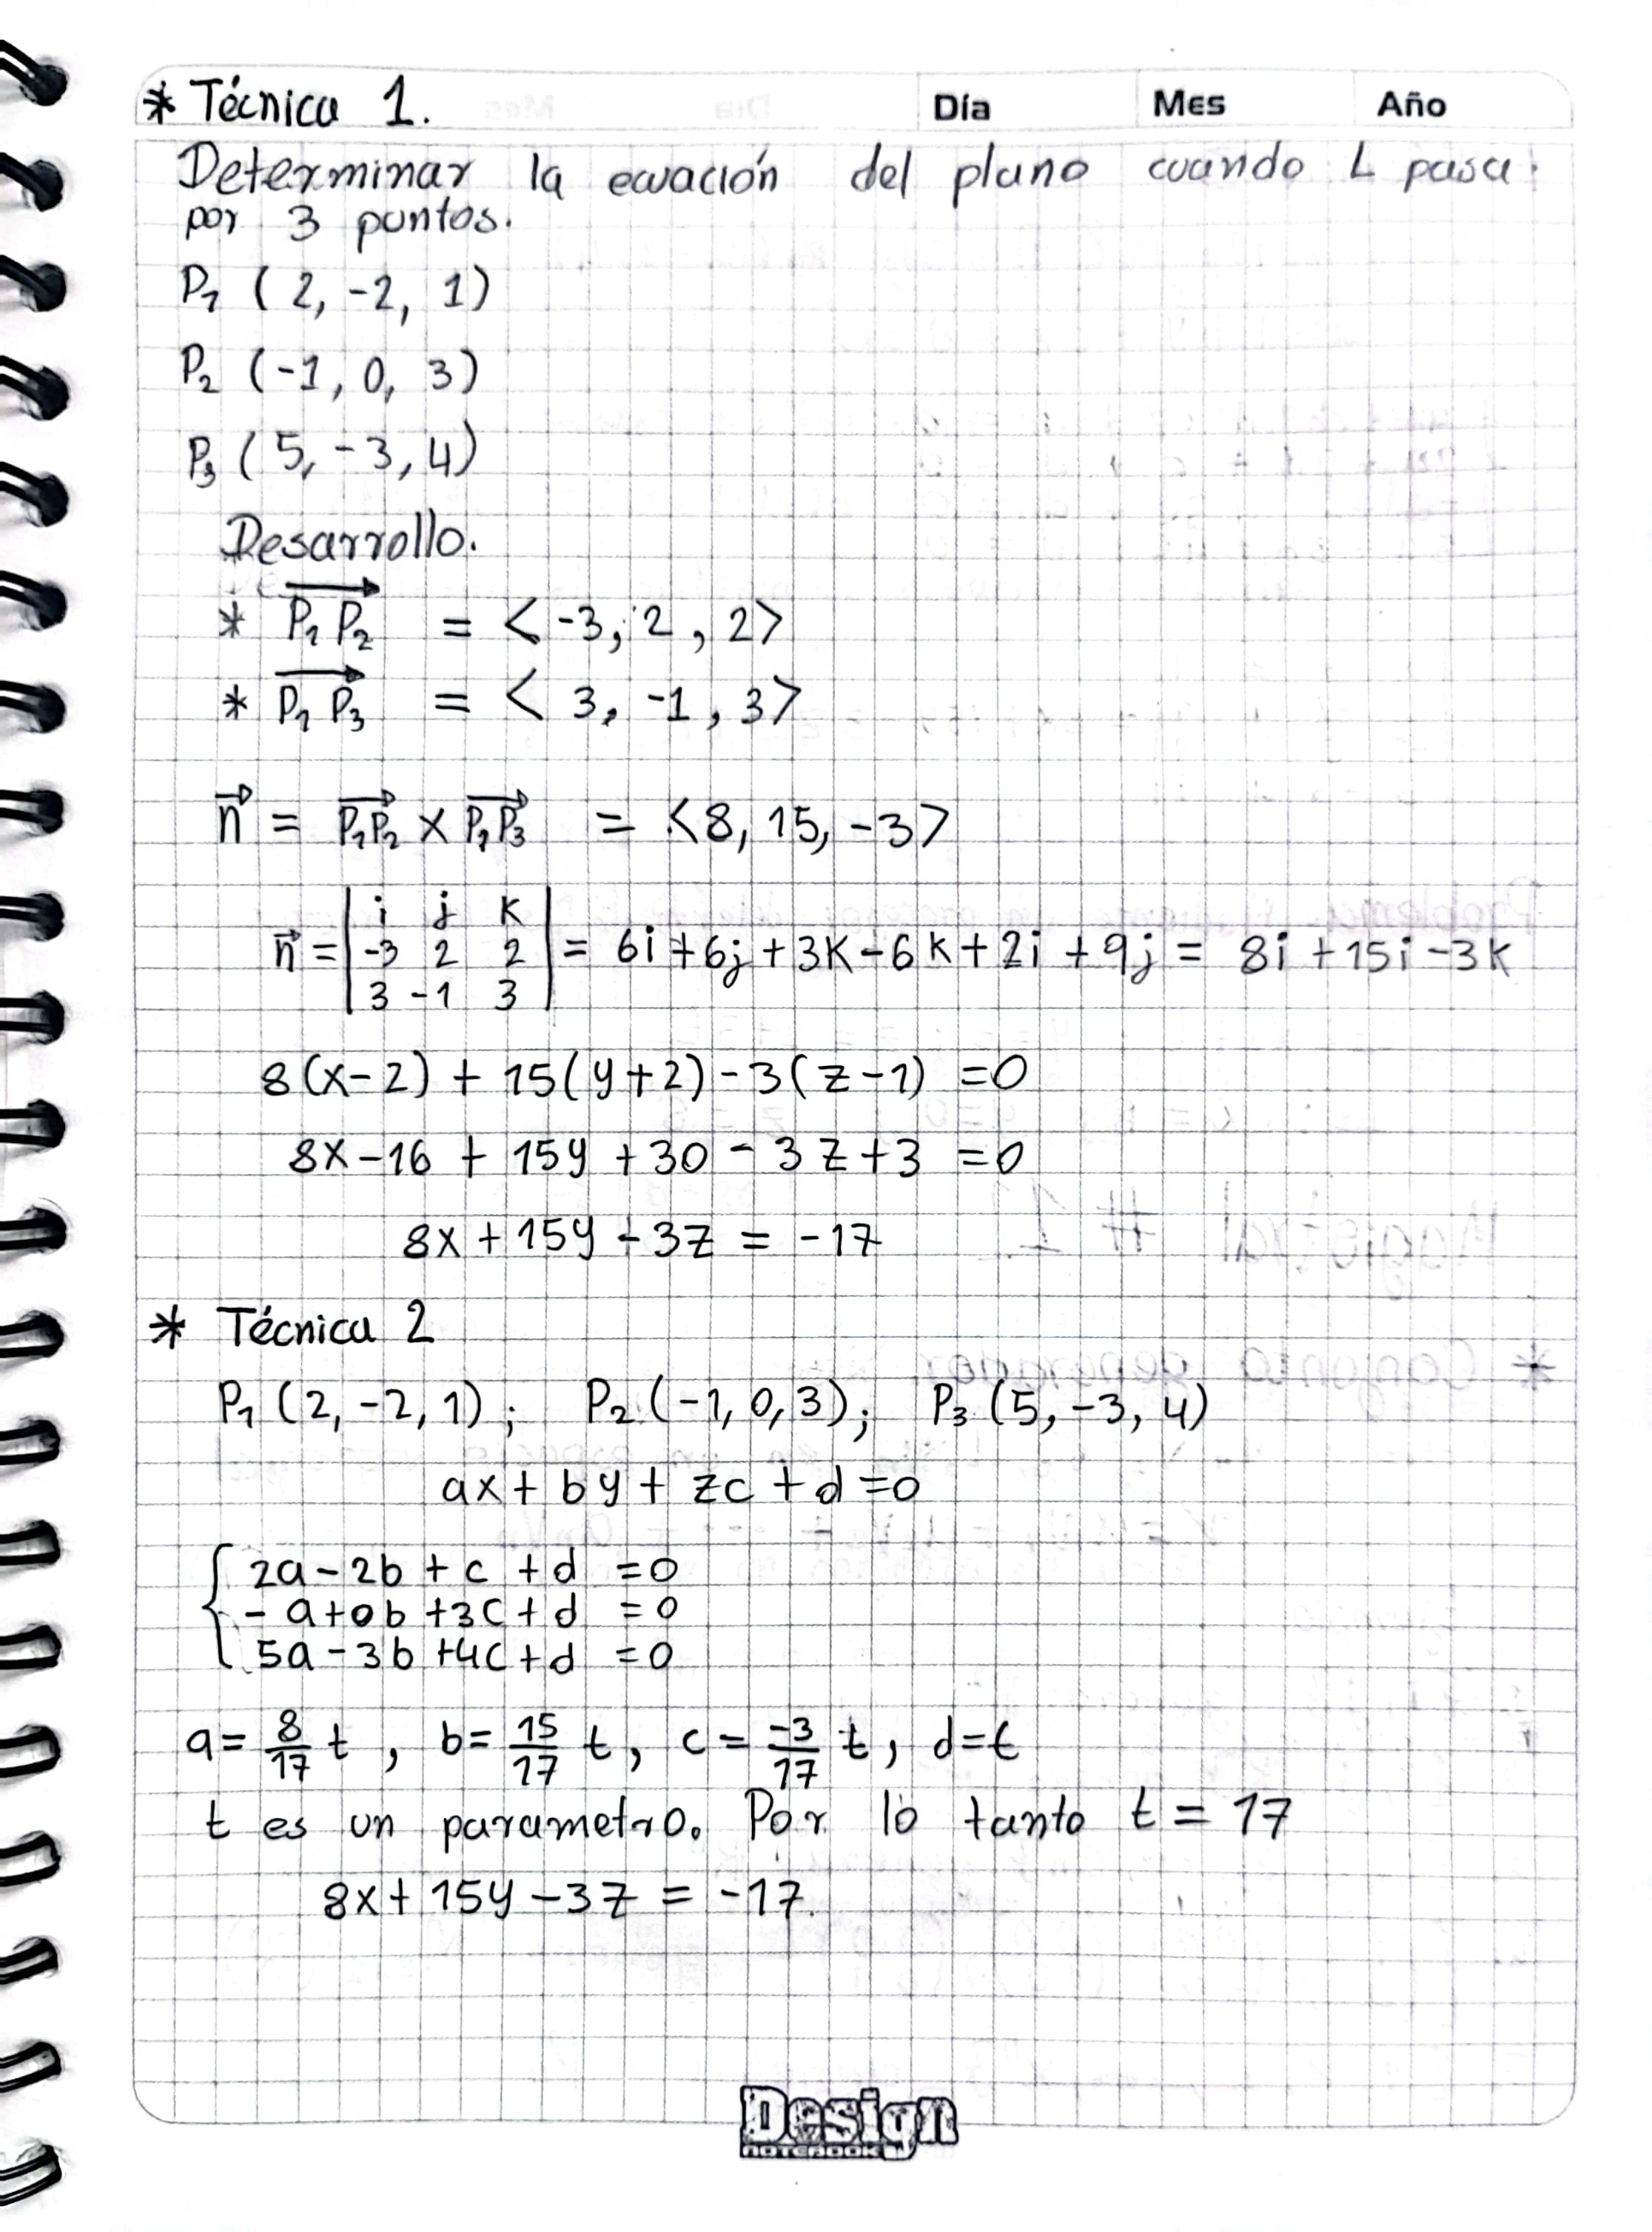 * Técnica 1.
Día Mes Año
Determinar la ecuación del plano cuando L pasa
por 3 puntos.
P₁ (2, -2, 1)
P₂ (-1, 0, 3)
P₃ (5, -3, 4)
Desarrollo.
* P₁P₂ = <-3, 2, 2>
* P₁P₃ = <3, -1, 3>
n⃗ = P₁P₂ x P₁P₃ = <8, 15, -3>
i j k
n⃗ = -3 2 2 = 6i + 6j + 3k - 6k + 2i + 9j = 8i + 15i - 3k
3 -1 3
8(x-2) + 15(y+2) - 3(z-1) = 0
8x - 16 + 15y + 30 - 3z + 3 = 0
8x + 15y - 3z = -17
* Técnica 2
P₁ (2, -2, 1); P₂ (-1, 0, 3); P₃ (5, -3, 4)
ax + by + zc + d = 0
2a - 2b + c + d = 0
- a + 0b + 3c + d = 0
5a - 3b + 4c + d = 0
a = 8/17 t, b = 15/17 t, c = -3/17 t, d = t
t es un parametro. Por lo tanto t = 17
8x + 15y - 3z = -17.
Design
NOTEBOOK